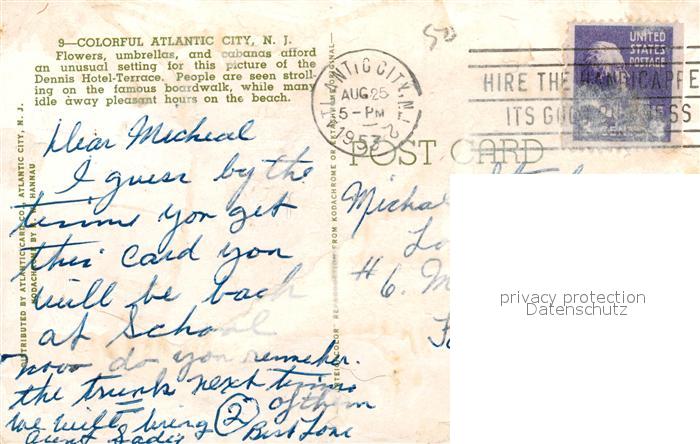 9—COLORFUL ATLANTIC CITY, N. J.
Flowers, umbrellas, and cabanas afford
an unusual setting for this picture of the
Dennis Hotel-Terrace. People are seen stroll-
ing on the famous boardwalk, while many
idle away pleasant hours on the beach.
Dear Micheal
I guess by the
time you get
this card you
will be back
at School
now do you remember
the trunks next time
we will bring 2 of them
Best Love
Aunt Sadie
DISTRIBUTED BY ATLANTIC CARD CO., ATLANTIC CITY, N. J.
KODACHROME BY HANNAU
REPRODUCTION FROM KODACHROME OR EKTACHROME ORIGINAL
50
ATLANTIC CITY, N.J.
AUG 25
5-PM
1953
2
UNITED
STATES
POSTAGE
HIRE THE HANDICAPPE
ITS GOOD BUSINESS
POST CARD
Michael
#6.
privacy protection
Datenschutz